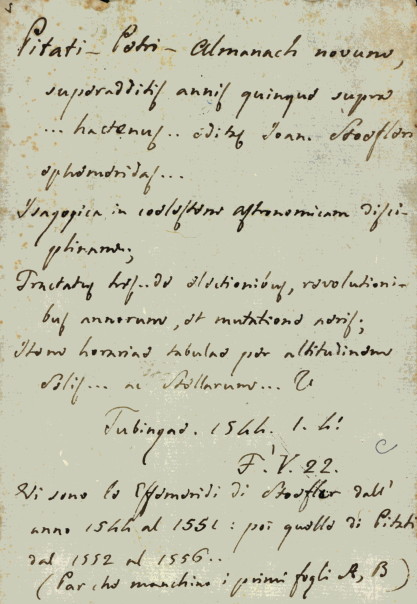 Pitati – Petri – Almanach novum,
superadditis annis quinque supra
... hactenus .. editas Joan. Stoefleri
ephemeridas...
Isagogica in coelestem astronomicam disci-
plinam;
Tractatus tres.. de electionibus, revolutioni-
bus annorum, et mutatione aeris;
Item horariae tabulae per altitudinem
Solis... ac Stellarum...
Tubingae. 1544. 1.
F. V. 22.
Vi sono le Effemeridi di Stoefler dall'
anno 1544 al 1551: poi quelle di Pitati
dal 1552 al 1556..
(Par che manchino i primi fogli A, B)